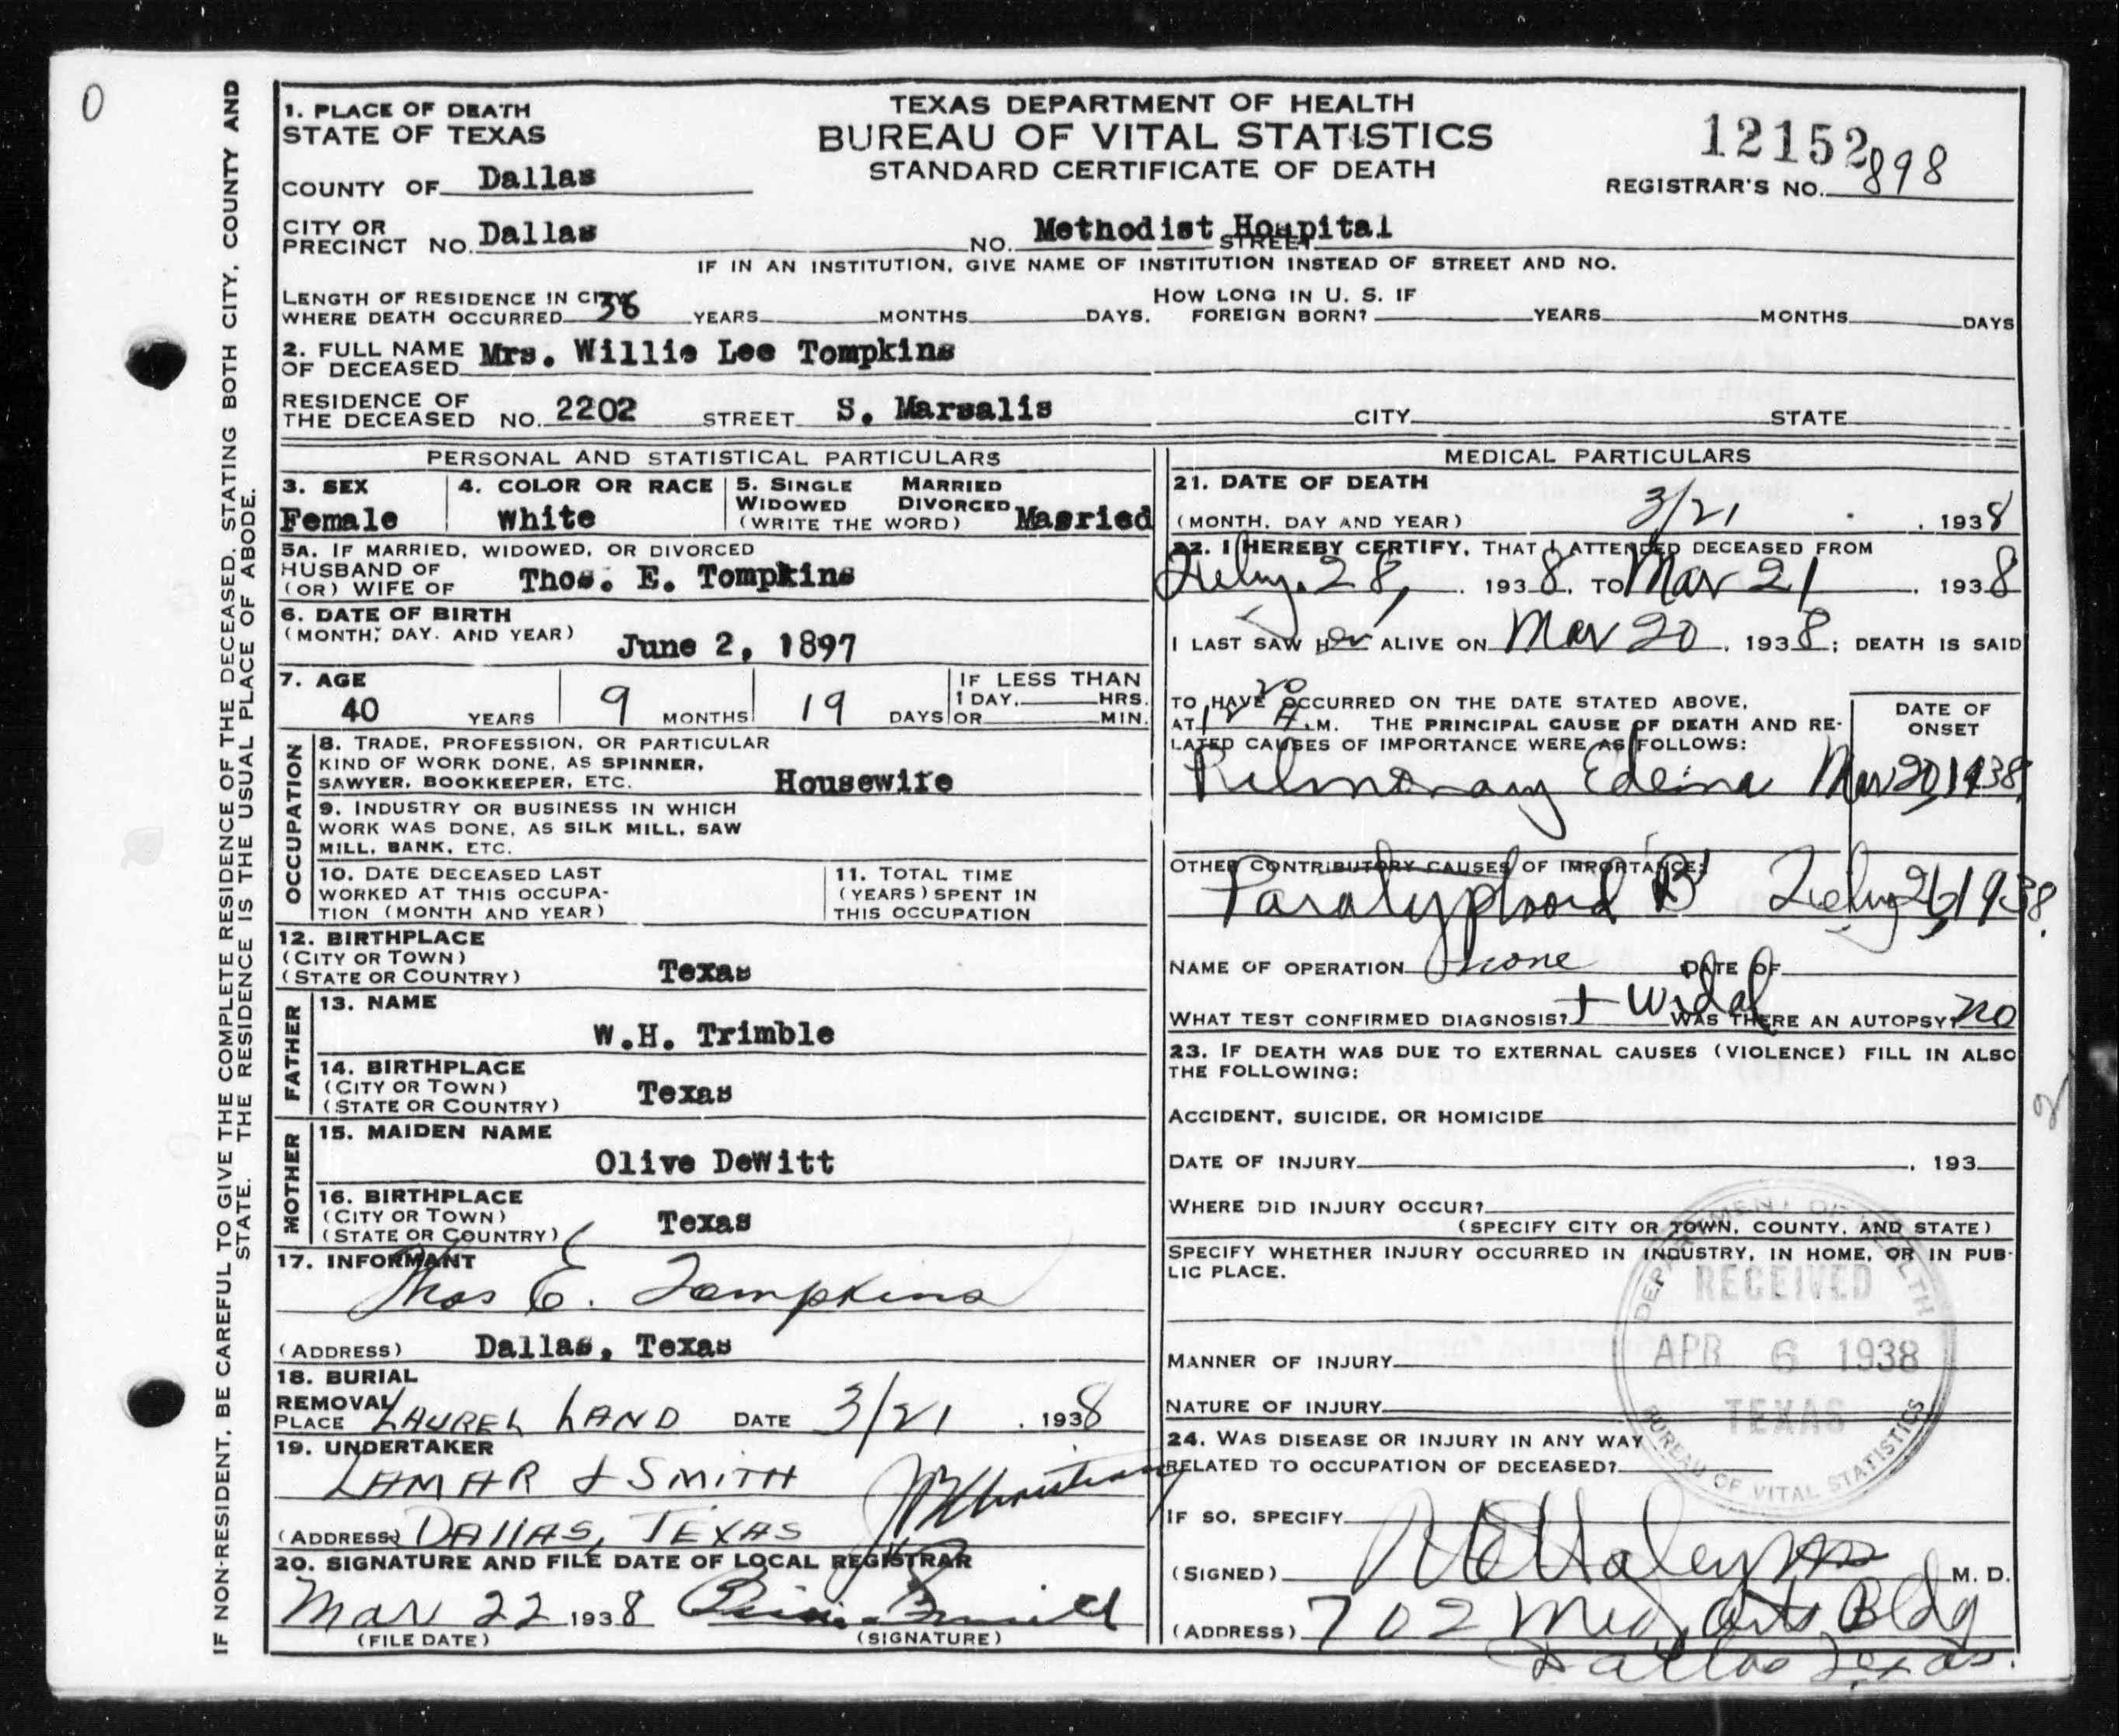 0
1. PLACE OF DEATH
STATE OF TEXAS
COUNTY OF Dallas
CITY OR PRECINCT NO. Dallas
TEXAS DEPARTMENT OF HEALTH
BUREAU OF VITAL STATISTICS
STANDARD CERTIFICATE OF DEATH
12152
REGISTRAR'S NO. 898
NO. Methodist Hospital STREET
IF IN AN INSTITUTION, GIVE NAME OF INSTITUTION INSTEAD OF STREET AND NO.
LENGTH OF RESIDENCE IN CITY
WHERE DEATH OCCURRED 36 YEARS MONTHS DAYS.
HOW LONG IN U. S. IF
FOREIGN BORN? YEARS MONTHS DAYS
2. FULL NAME
OF DECEASED Mrs. Willie Lee Tompkins
RESIDENCE OF
THE DECEASED NO. 2202 STREET S. Marsalis CITY STATE
PERSONAL AND STATISTICAL PARTICULARS
3. SEX
Female
4. COLOR OR RACE
White
5. SINGLE MARRIED
WIDOWED DIVORCED
(WRITE THE WORD) Married
5A. IF MARRIED, WIDOWED, OR DIVORCED
HUSBAND OF
(OR) WIFE OF Thos. E. Tompkins
6. DATE OF BIRTH
(MONTH, DAY. AND YEAR) June 2, 1897
7. AGE
40 YEARS 9 MONTHS 19 DAYS
IF LESS THAN
1 DAY, HRS.
OR MIN.
OCCUPATION
8. TRADE, PROFESSION, OR PARTICULAR
KIND OF WORK DONE, AS SPINNER,
SAWYER, BOOKKEEPER, ETC. Housewife
9. INDUSTRY OR BUSINESS IN WHICH
WORK WAS DONE, AS SILK MILL, SAW
MILL, BANK, ETC.
10. DATE DECEASED LAST
WORKED AT THIS OCCUPA-
TION (MONTH AND YEAR)
11. TOTAL TIME
(YEARS) SPENT IN
THIS OCCUPATION
12. BIRTHPLACE
(CITY OR TOWN)
(STATE OR COUNTRY) Texas
FATHER
13. NAME
W.H. Trimble
14. BIRTHPLACE
(CITY OR TOWN)
(STATE OR COUNTRY) Texas
MOTHER
15. MAIDEN NAME
Olive DeWitt
16. BIRTHPLACE
(CITY OR TOWN)
(STATE OR COUNTRY) Texas
17. INFORMANT
Thos E. Tompkins
(ADDRESS) Dallas, Texas
18. BURIAL
REMOVAL
PLACE LAUREL LAND DATE 3/21, 1938
19. UNDERTAKER
LAMAR & SMITH
(ADDRESS) DALLAS, TEXAS
20. SIGNATURE AND FILE DATE OF LOCAL REGISTRAR
Mar 22 1938
(FILE DATE) (SIGNATURE)
MEDICAL PARTICULARS
21. DATE OF DEATH
(MONTH, DAY AND YEAR) 3/21, 1938
22. I HEREBY CERTIFY, THAT I ATTENDED DECEASED FROM
Feby. 28, 1938, TO Mar 21, 1938
I LAST SAW HER ALIVE ON Mar 20, 1938; DEATH IS SAID
TO HAVE OCCURRED ON THE DATE STATED ABOVE,
AT 12 20 A.M. THE PRINCIPAL CAUSE OF DEATH AND RE-
LATED CAUSES OF IMPORTANCE WERE AS FOLLOWS:
DATE OF
ONSET
Pulmonary Edema Mar 20, 1938
OTHER CONTRIBUTORY CAUSES OF IMPORTANCE:
Paratyphoid "B" Feby 26, 1938.
NAME OF OPERATION None DATE OF
WHAT TEST CONFIRMED DIAGNOSIS? + Widal WAS THERE AN AUTOPSY? no
23. IF DEATH WAS DUE TO EXTERNAL CAUSES (VIOLENCE) FILL IN ALSO
THE FOLLOWING:
ACCIDENT, SUICIDE, OR HOMICIDE
DATE OF INJURY , 193
WHERE DID INJURY OCCUR?
(SPECIFY CITY OR TOWN, COUNTY, AND STATE)
SPECIFY WHETHER INJURY OCCURRED IN INDUSTRY, IN HOME, OR IN PUB-
LIC PLACE.
MANNER OF INJURY
NATURE OF INJURY
24. WAS DISEASE OR INJURY IN ANY WAY
RELATED TO OCCUPATION OF DECEASED?
IF SO, SPECIFY
(SIGNED) M. D.
(ADDRESS) 702 Med. Arts Bldg
Dallas Texas.
DEPARTMENT OF HEALTH
RECEIVED
APR 6 1938
TEXAS
BUREAU OF VITAL STATISTICS
IF NON-RESIDENT, BE CAREFUL TO GIVE THE COMPLETE RESIDENCE OF THE DECEASED, STATING BOTH CITY, COUNTY AND
STATE. THE RESIDENCE IS THE USUAL PLACE OF ABODE.